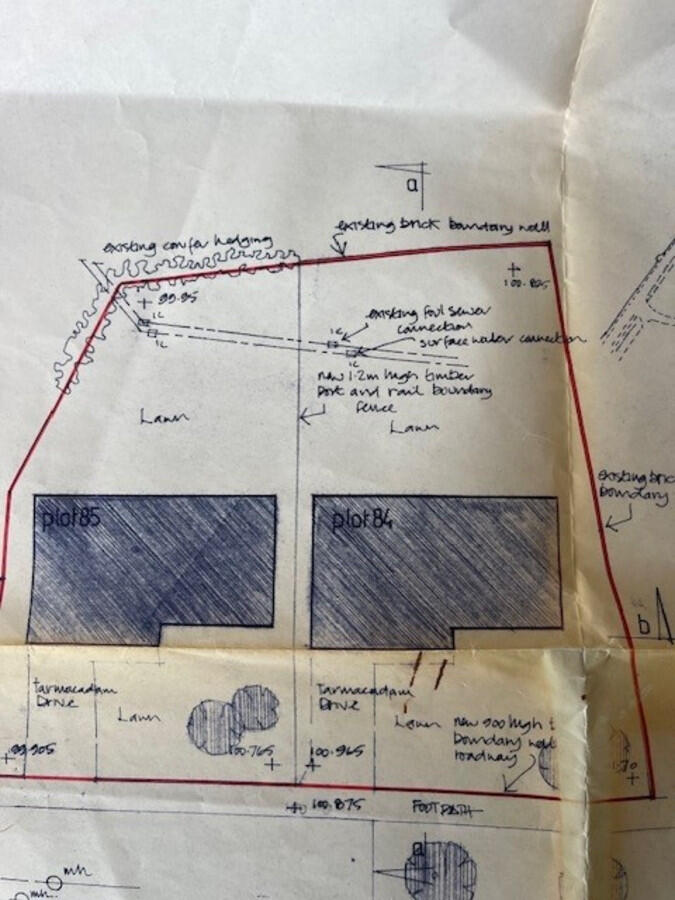 a
existing brick boundary wall
existing confer hedging
99.95
100.825
IC
IC
existing foul sewer
connection
surface water connection
IC
IC
new 1.2m high timber
post and rail boundary
fence
Lawn
Lawn
existing bric
boundary
plot 85
plot 84
b
Tarmacadam
Drive
Lawn
Tarmacadam
Drive
Lawn
new 900 high t
boundary wall
roadway
99.905
100.765
100.965
.70
100.875
FOOTPATH
a
mh
mh.